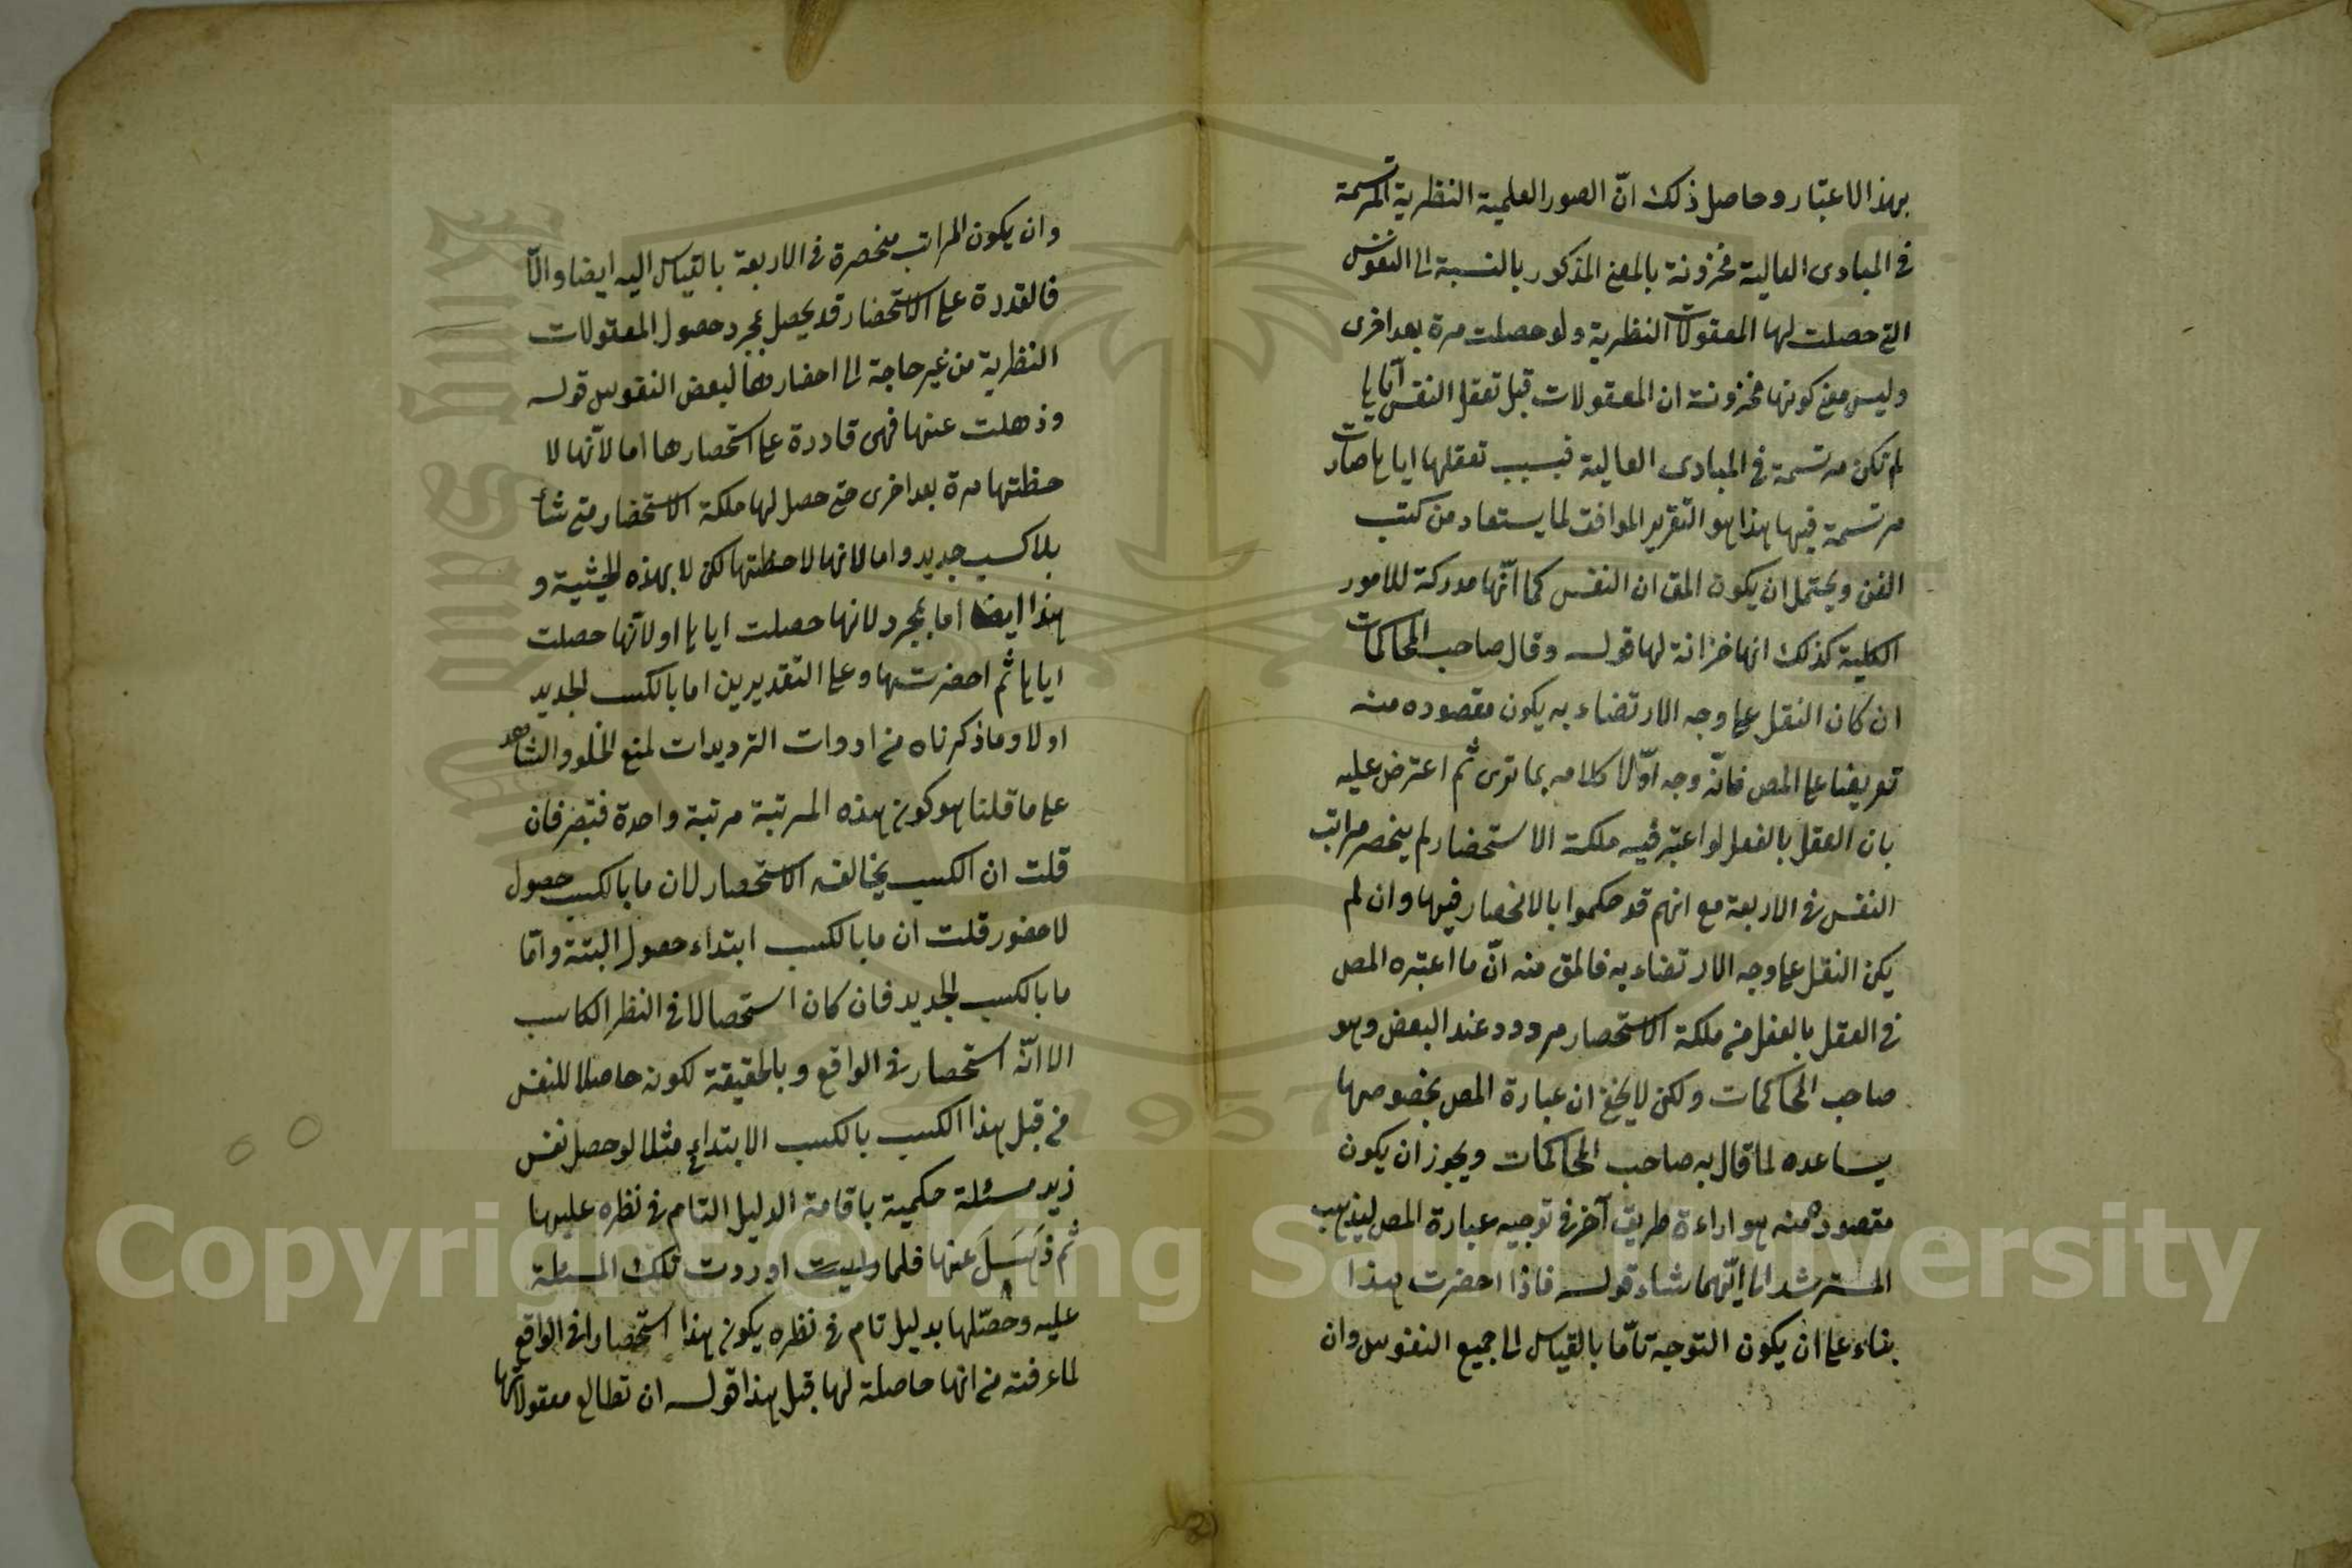 بهذا الاعتبار وحاصل ذلك انّ الصور العلمية النظرية المرتسمة
في المبادى العالية مخزونة بالمعنى المذكور بالنسبة الى النفوس
التي حصلت لها المعقولات النظرية ولو حصلت مرة بعد اخرى
وليس معنى كونها مخزونة ان المعقولات قبل تعقل النفس اياها
لم تكن مرتسمة في المبادى العالية فبسبب تعقلها اياها صارت
مرتسمة فيها هذا هو التقرير الموافق لما يستفاد من كتب
الفن ويحتمل ان يكون المق ان النفس كما انّها مدركة للامور
الكلية كذلك انها خزانة لها قوله وقال صاحب المحاكمات
ان كان النقل على وجه الارتضاء به يكون مقصوده منه
تعريضا على المص فانّه وجه اوّلا كلامه بما ترى ثم اعترض عليه
بان العقل بالفعل لو اعتبر فيه ملكة الاستحضار لم ينحصر مراتب
النفس في الاربعة مع انهم قد حكموا بالانحصار فيها وان لم
يكن النقل على وجه الارتضاء به فالمق منه انّ ما اعتبره المص
في العقل بالفعل من ملكة الاستحضار مردود عند البعض وهو
صاحب المحاكمات ولكن لا يخفى ان عبارة المص بخصوصها
يساعده لما قال به صاحب المحاكمات ويجوز ان يكون
مقصوده منه هو اراءة طريق آخر في توجيه عبارة المص ليذهب
المسترشد الى ايّهما شاء قوله فاذا احضرت هذا
بناء على ان يكون التوجيه تامّا بالقياس الى جميع النفوس وان
وان يكون المراتب منحصرة في الاربعة بالقياس اليه ايضا والّا
فالقدرة على الاستحضار قد يحصل بمجرد حصول المعقولات
النظرية من غير حاجة الى احضارها لبعض النفوس قوله
وذهلت عنها فهى قادرة على استحضارها اما لانّها لا
حظتها مرة بعد اخرى حتى حصل لها ملكة الاستحضار متى شأ
بلا كسب جديد واما لانها لاحظتها لكن لا بهذه الحيثية و
هذا ايضا اما بمجرد لانها حصلت اياها او لانّها حصلت
اياها ثم احضرتها وعلى التقديرين اما بالكسب الجديد
اولا وما ذكرناه من ادوات الترديدات لمنع الخلو والشاهد
على ما قلنا هو كون هذه المرتبة مرتبة واحدة فتبصر فان
قلت ان الكسب يخالف الاستحضار لان ما بالكسب حصول
لا حضور قلت ان ما بالكسب ابتداء حصول البتة وامّا
ما بالكسب الجديد فان كان استحصالا في النظر الكاسب
الا انّه استحضار في الواقع وبالحقيقة لكونه حاصلا للنفس
من قبل هذا الكسب بالكسب الابتدائي مثلا لو حصل نفس
زيد مسئلة حكمية باقامة الدليل التام في نظره عليها
ثم ذَهَلَ عنها فلما اوردت تلك المسئلة
عليه وحصّلها بدليل تام في نظره يكون هذا استحضارا في الواقع
لما عرفته من انها حاصلة لها قبل هذا قوله ان تطالع معقولاتها
Copyright © King Saud University
1957